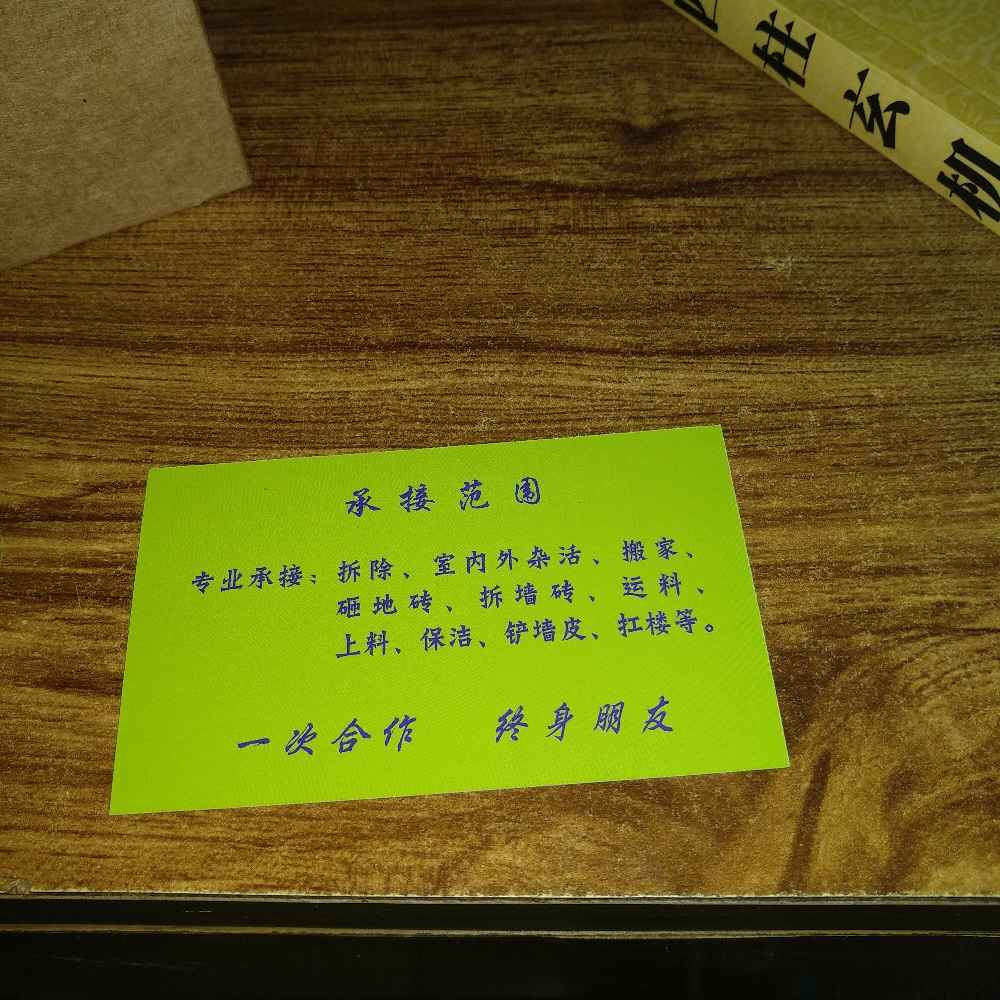 柱玄机
承接范围
专业承接：拆除、室内外杂活、搬家、
砸地砖、拆墙砖、运料、
上料、保洁、铲墙皮、扛楼等。
一次合作 终身朋友